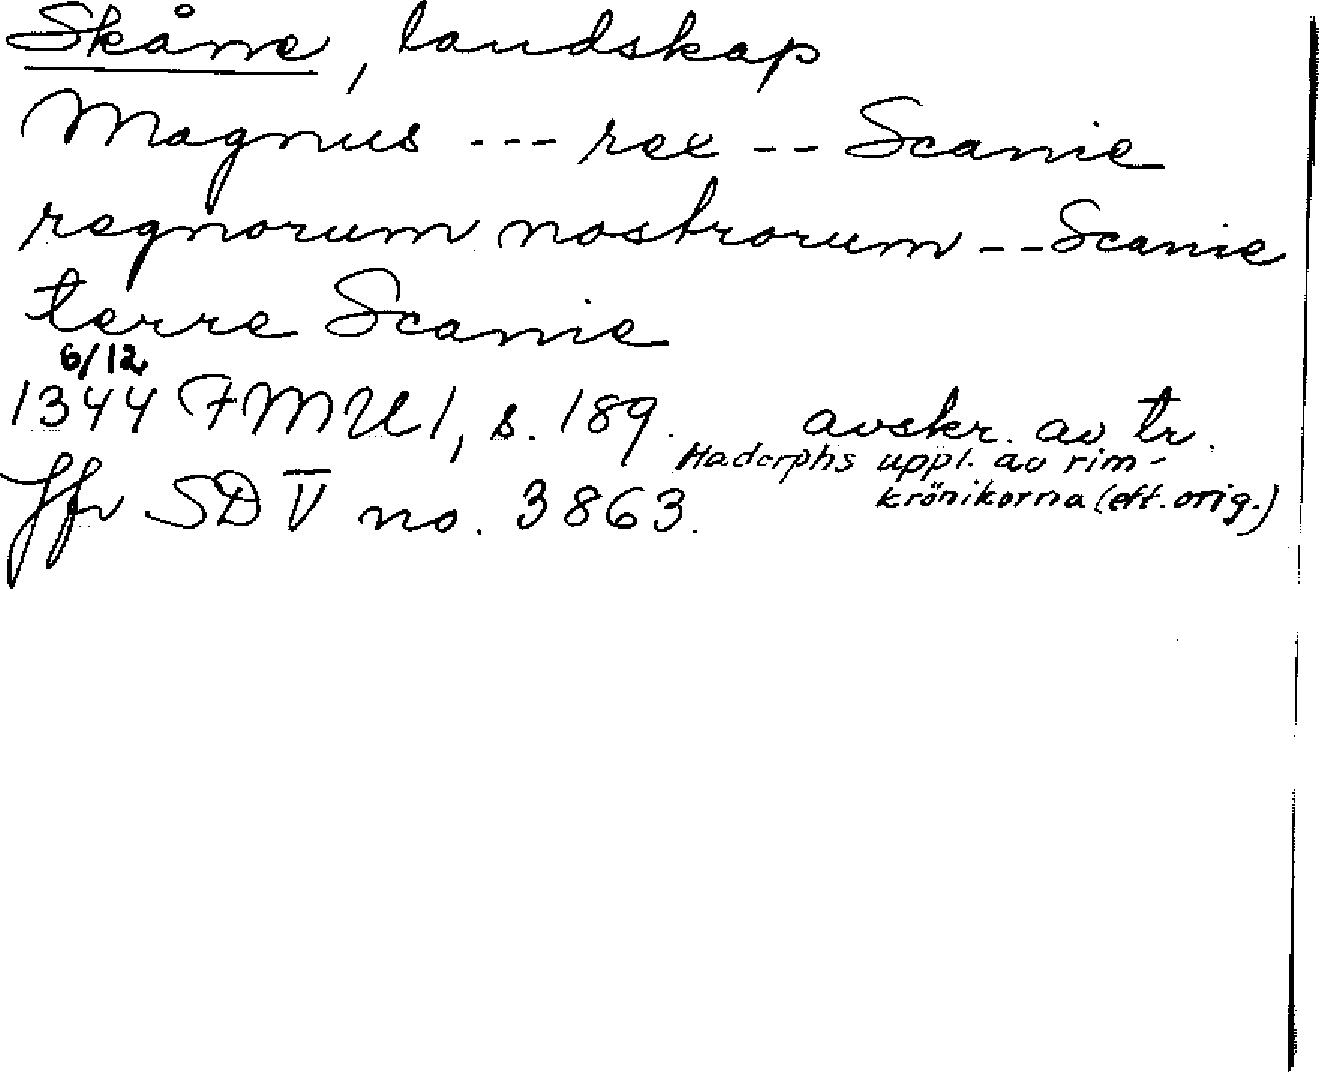 Skåne, landskap
Magnus --- rex -- Scanie
regnorum nostrorum -- Scanie
terre Scanie
6/12
1344 FMU 1, s. 189. avskr. av tr.
Hadorphs uppl. av rim-
krönikorna (eft. orig.)
Jfr SD V no. 3863.